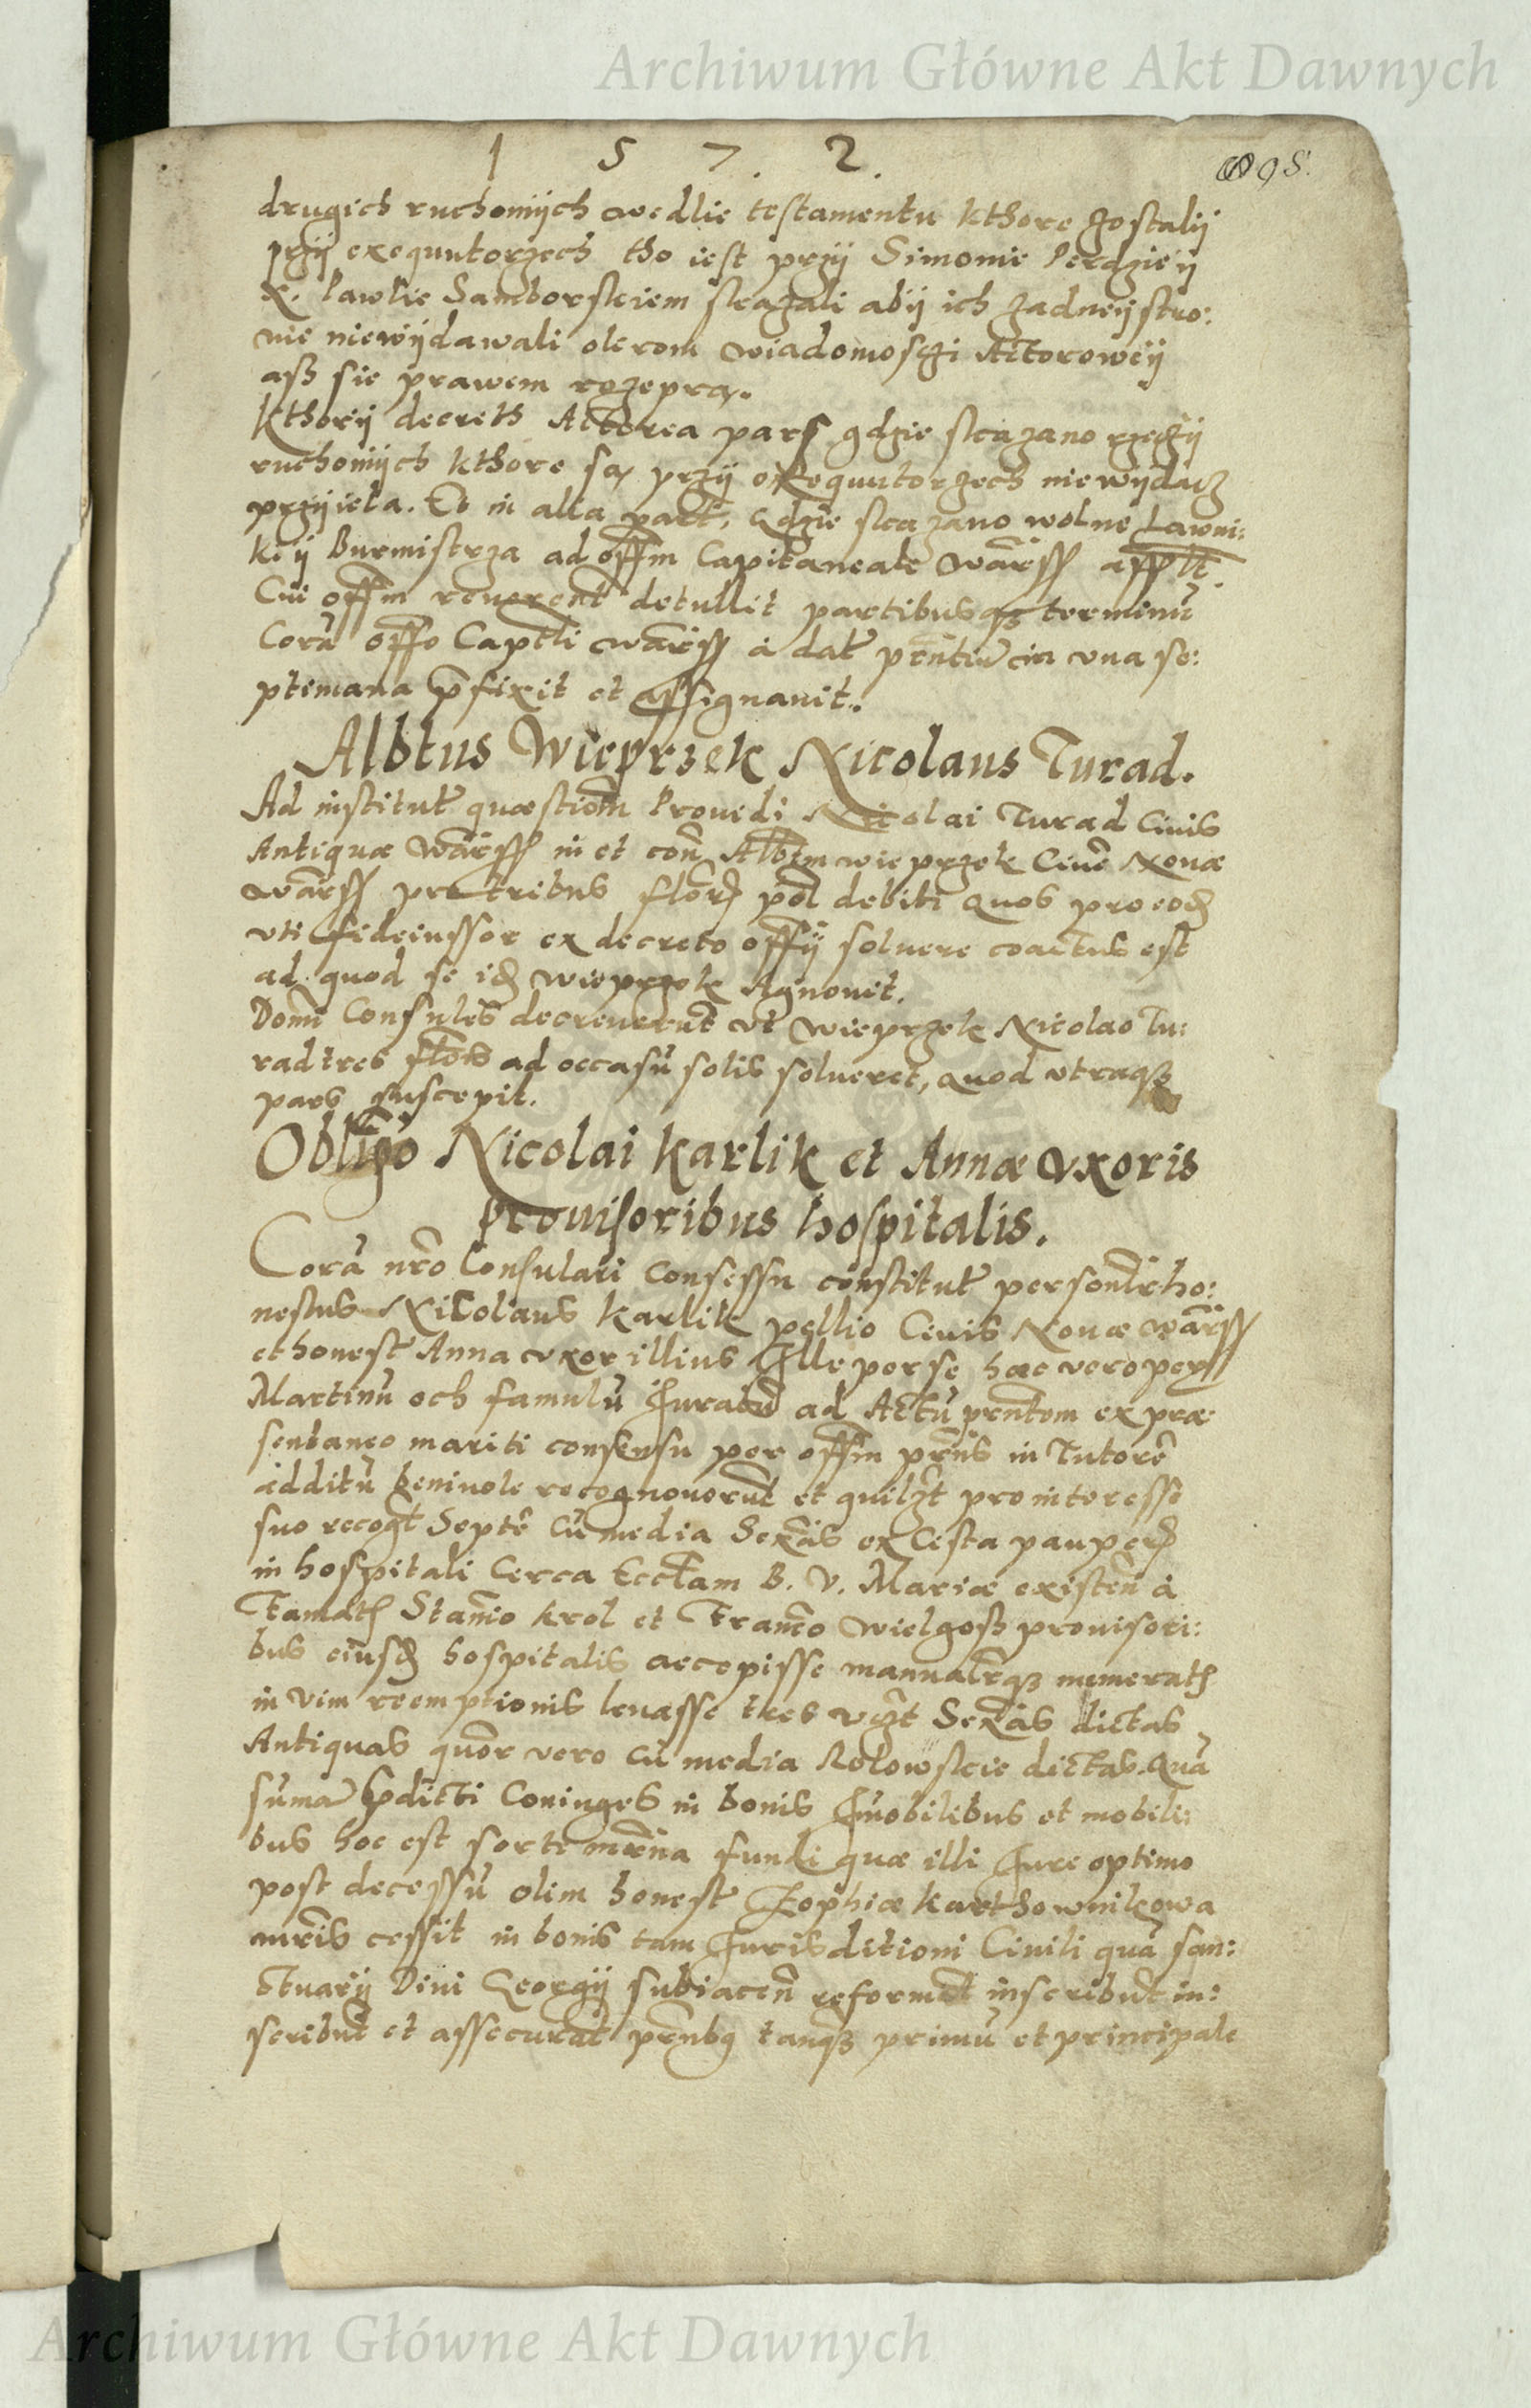 Archiwum Główne Akt Dawnych
1 5 7. 2.
98.
drugich ruchomÿch wedlie testamentu kthore zostalÿ
przÿ exequutorzech tho iest przÿ Simonie Perdzieÿ
X. Pawlie Samborskiem skazali abÿ ich zadneÿ stro:
nie niewÿdawali okrom wiadomosczi Actoroweÿ
asz sie prawem rozeprą.
Kthorÿ decreth Actorea pars gdzie skazano rzeczÿ
ruchomÿch kthore są przÿ exequutorzech niewÿdacz
przÿiela. Et in alia part, gdzie skazano wolne Lawni:
ki ÿ Burmistrza ad offm Capitaneale Warss appllt.
Cui offm reuerent detullit partibusqz terminū
Corā offo Captli Warss á dat pntiū in vna se:
ptimana pfixit et assignauit.
Albtus Wieprzek Nicolaus Turad.
Ad institut quæstiom Prouidi Nicolai Turad Ciuis
Antiquæ Warss in et con Albtm wieprzek Ciuē Nouæ
Warss pro tribus flor pol debiti quos pro eod
vti fideiussor ex decreto offÿ soluere coactus est
ad quod se id wieprzek Agnouit.
Domi Consules decreuerūt vt wieprzek Nicolao Tu:
rad tres flos ad occasū solis solueret, quod vtraqz
pars suscepit.
Obligo Nicolai Karlik et Annæ vxoris
prouisoribus hospitalis.
Corā nro Consulari Consessu constitut personlr ho:
nestus Nicolaus Karlik pellio Ciuis Nouæ Warss
et honest Anna vxor illius Ille per se hæc vero per
Martinū och famulū Iuratū ad Actū pntem ex præ
sentaneo mariti consensu per offm prns in Tutorē
additū beniuole recognouerūt et quilzt pro interesse
suo recogt Septē cū media Sexās ex Cista pauperū
in hospitali Cerca Eccliam B. V. Mariæ existen á
Famatis Stanio Krol et Franco Wielgosz prouisori:
bus eiusd hospitalis accepisse manualrqz numeratas
in vim reemptionis leuasse tres vzt Sexās dictas
Antiquas quor vero cū media Kolowskie dictas. Quā
sumā pdicti Coniuges in bonis Imobilibus et mobili:
bus hoc est sorte mrna fundi quæ illi Iure optimo
post decessū olim honest Zophiæ Karthownikowa
mris cessit in bonis tam Jurisditioni Ciuili quā san:
ctuarÿ Diui Georgÿ subiacen reformāt inscribūt in:
scribūt et assecurāt pntibq tanqz primū et principale
Archiwum Główne Akt Dawnych